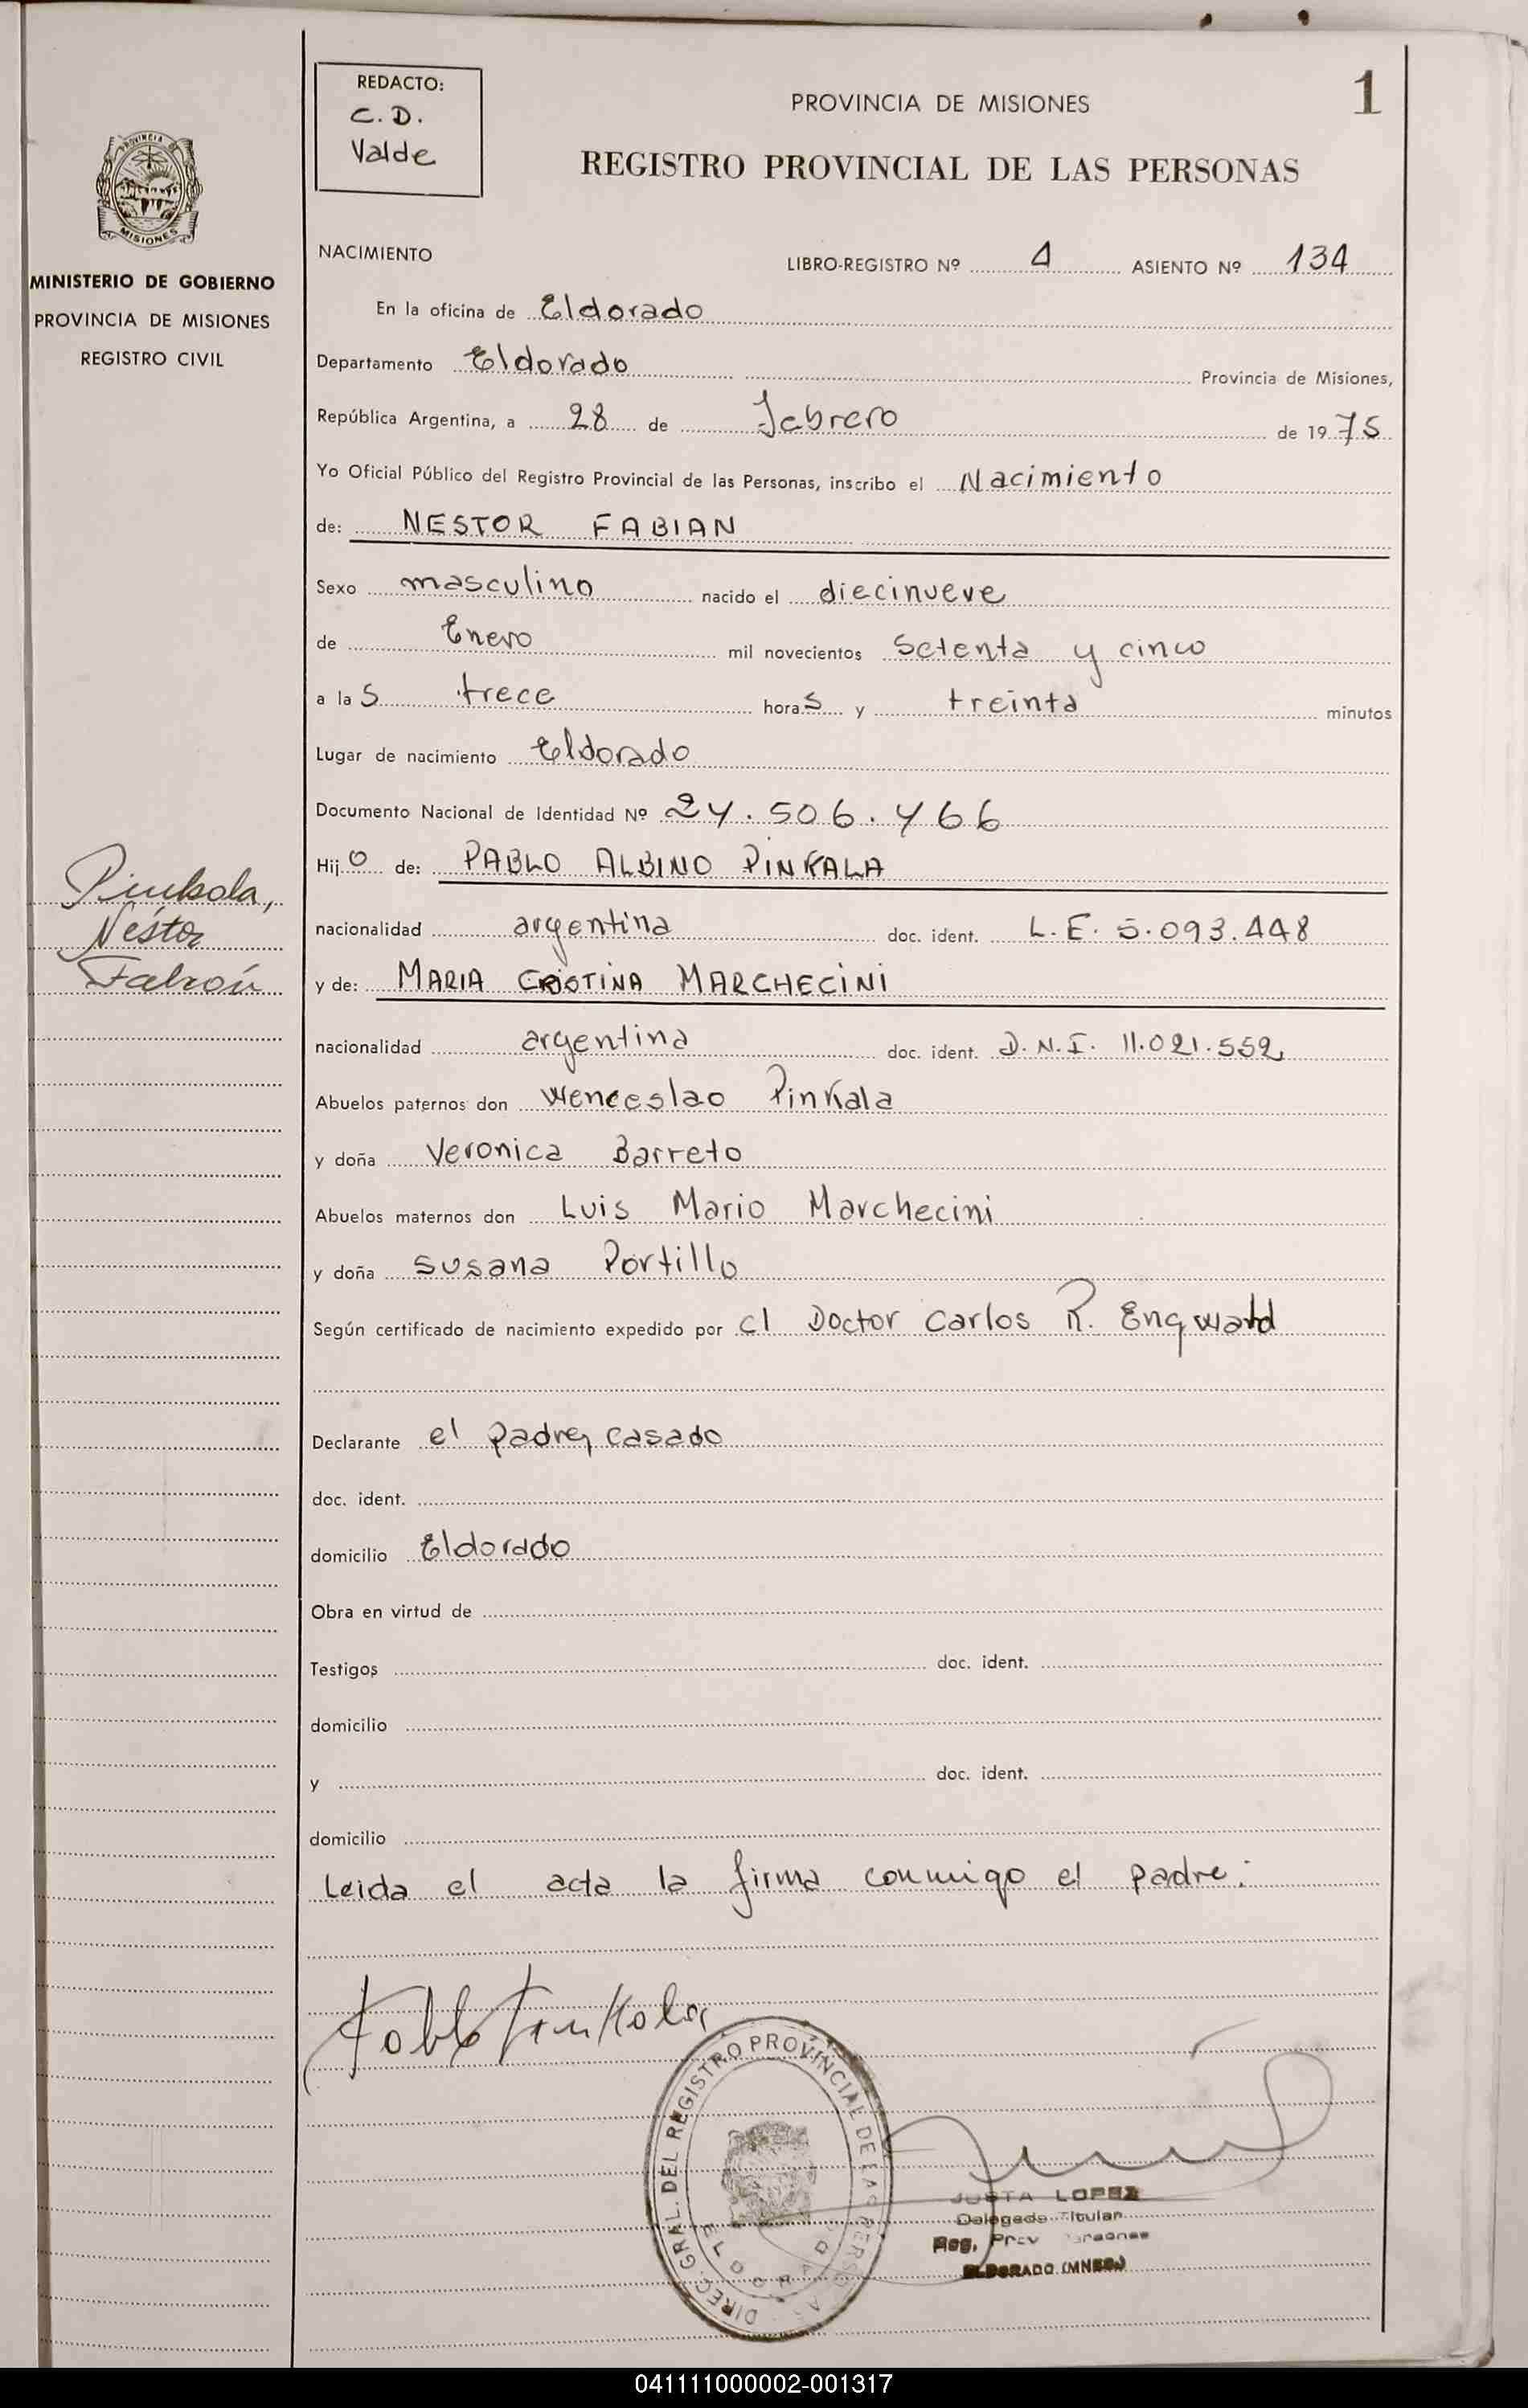 REDACTO:
C. D.
Valde
1
PROVINCIA DE MISIONES
REGISTRO PROVINCIAL DE LAS PERSONAS
MISIONES
MINISTERIO DE GOBIERNO
PROVINCIA DE MISIONES
REGISTRO CIVIL
NACIMIENTO
LIBRO-REGISTRO Nº ASIENTO Nº 134
En la oficina de Eldorado
Departamento Eldorado Provincia de Misiones,
República Argentina, a 28 de Febrero de 1975
Yo Oficial Público del Registro Provincial de las Personas, inscribo el Nacimiento
de: NESTOR FABIAN
Sexo masculino nacido el diecinueve
de Enero mil novecientos setenta y cinco
a las trece horas y treinta minutos
Lugar de nacimiento Eldorado
Documento Nacional de Identidad Nº 24.506.466
Hijo de: PABLO ALBINO PINKALA
Pinkala,
Néstor
Fabián
nacionalidad argentina doc. ident. L.E. 5.093.448
y de: MARIA CRISTINA MARCHECINI
nacionalidad argentina doc. ident. D.N.I. 11.021.552
Abuelos paternos don Wenceslao Pinkala
y doña Veronica Barreto
Abuelos maternos don Luis Mario Marchecini
y doña Susana Portillo
Según certificado de nacimiento expedido por el Doctor Carlos R. Engwald
Declarante el padre, casado
doc. ident.
domicilio Eldorado
Obra en virtud de
Testigos doc. ident.
domicilio
y doc. ident.
domicilio
Leida el acta la firma conmigo el padre:
Pablo Pinkala
DIREC. GRAL. DEL REGISTRO PROVINCIAL DE LAS PERSONAS
ELDORADO
JUSTA LOPEZ
Delegada Titular
Reg. Prov Personas
ELDORADO (MNES.)
041111000002-001317